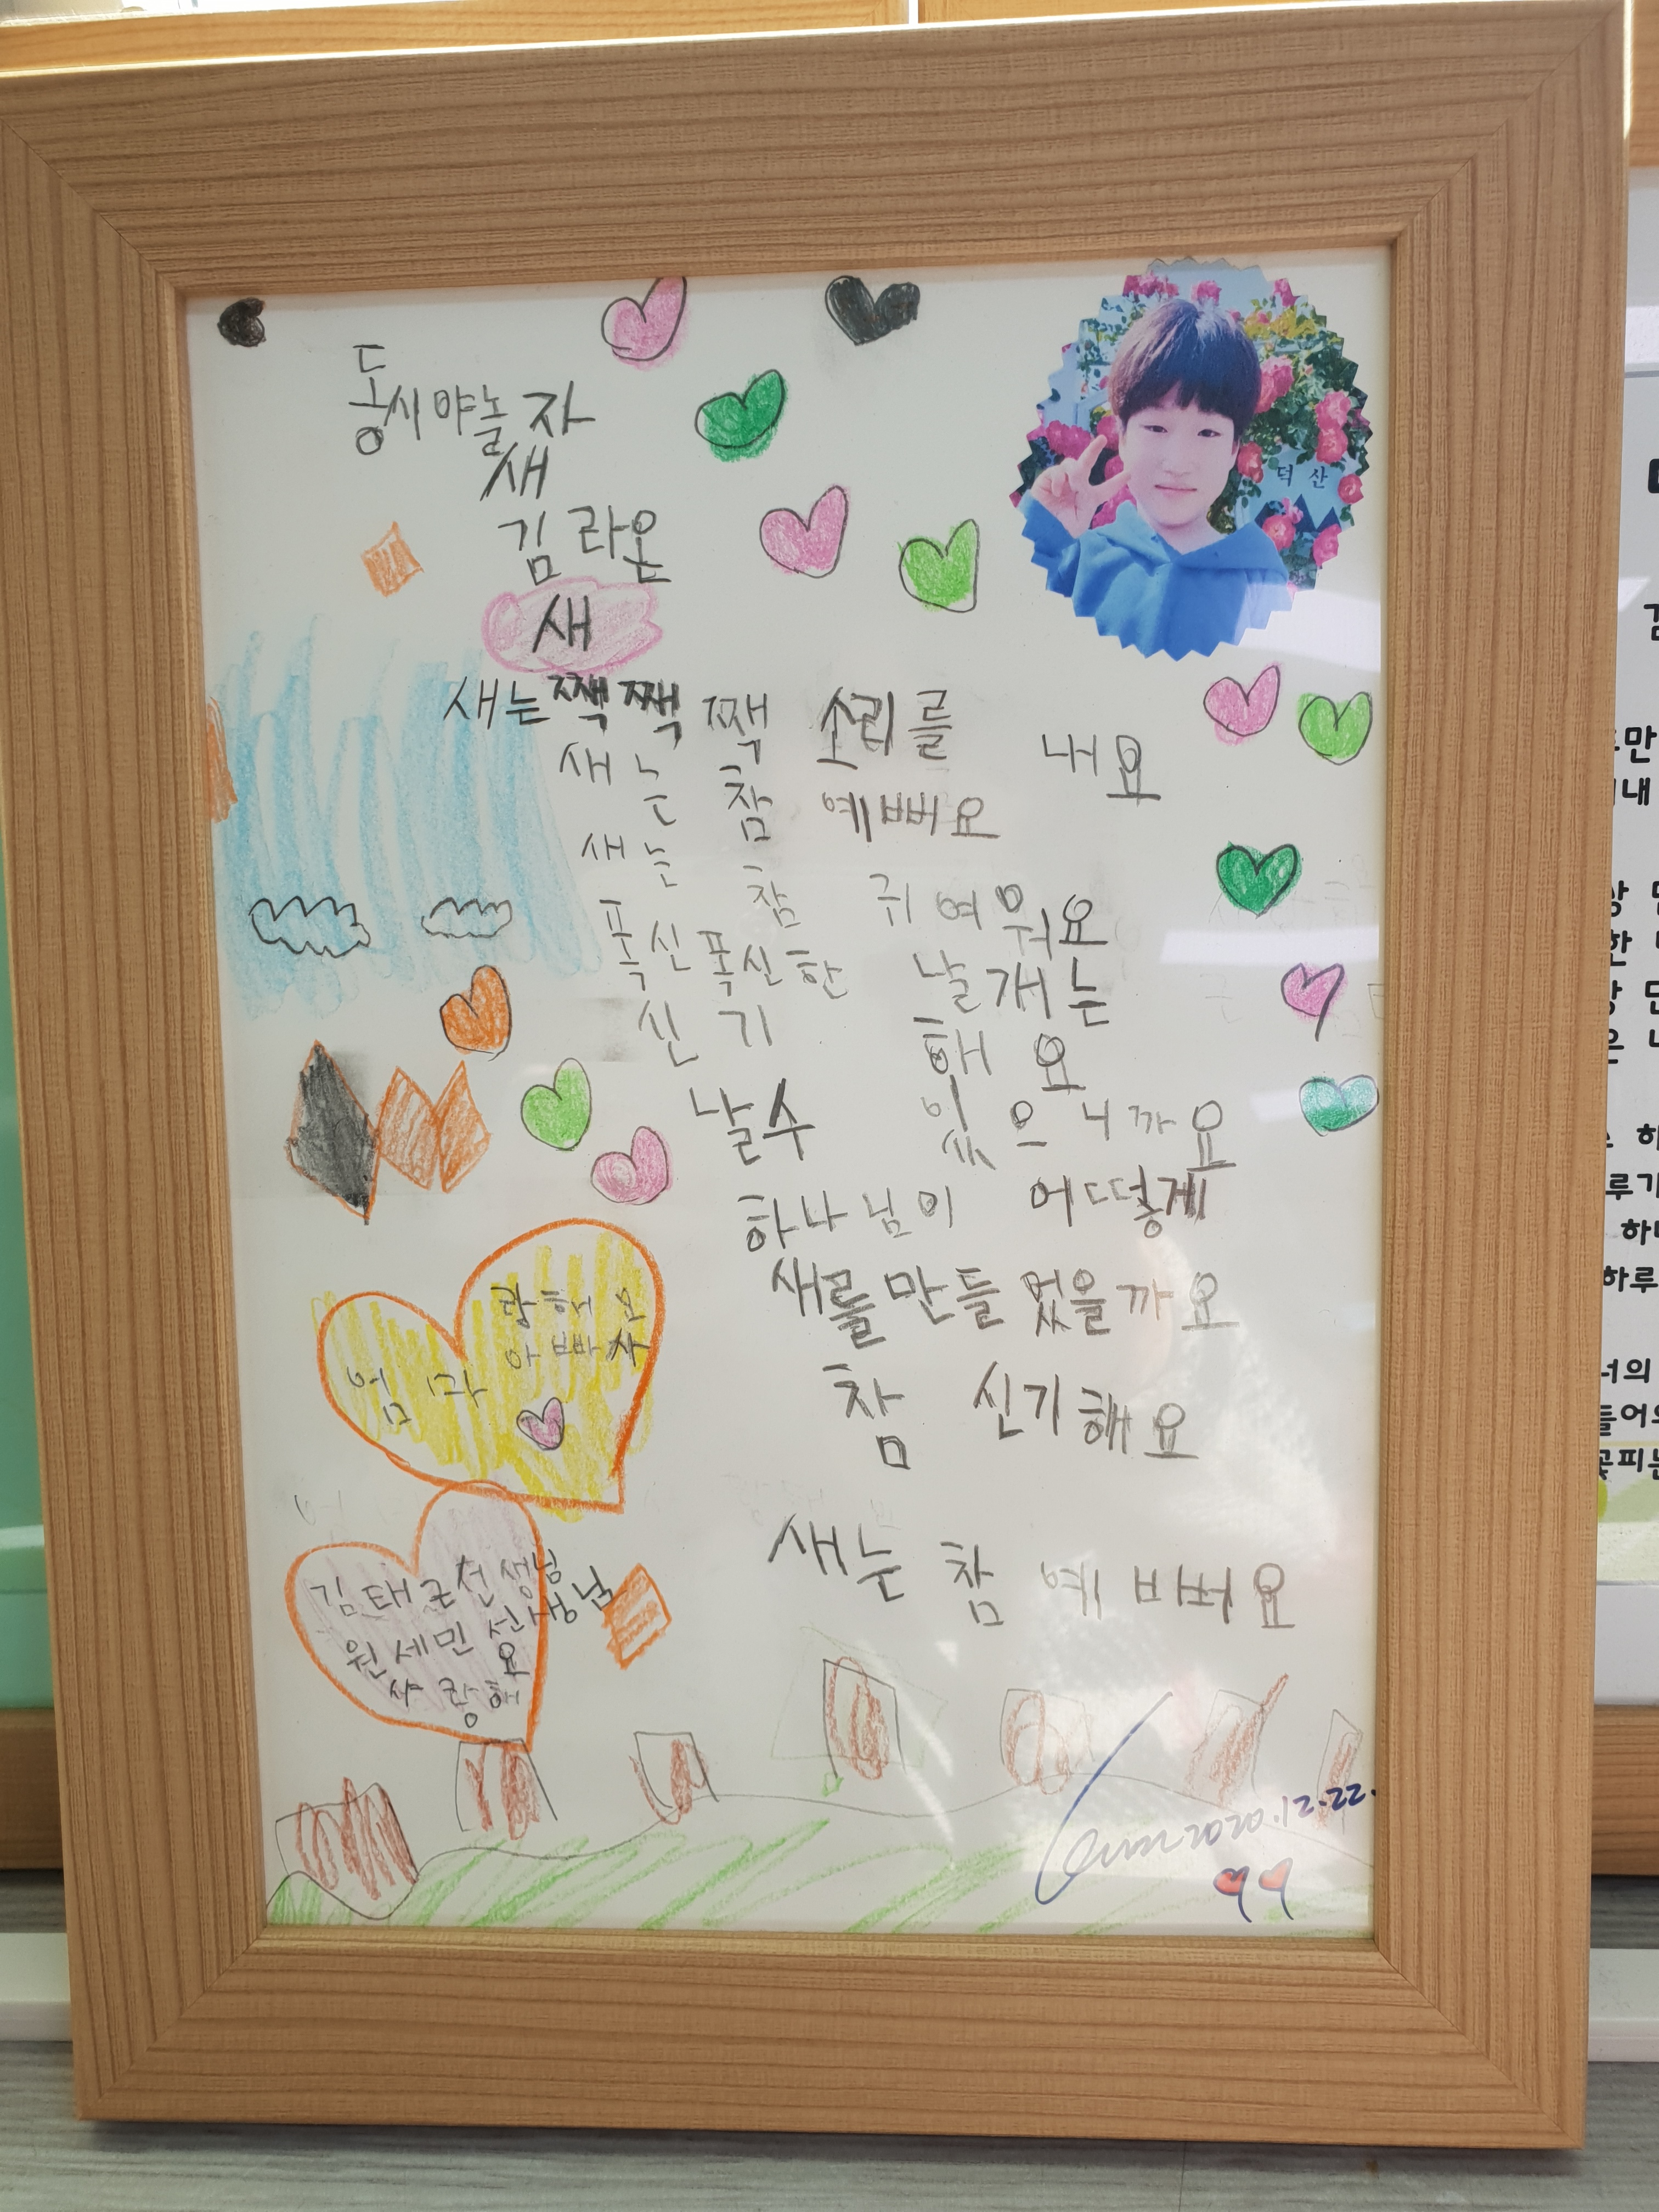 동시야놀자
새
김라온
새
덕산
새는 짹짹 짹 소리를 내요
새는 참 예뻐요
새는 참 귀여워요
폭신폭신한 날개는
신기해요
날수 있으니까요
하나님이 어떻게
새를 만들었을까요
참 신기해요
새는 참 예뻐요
엄마 아빠 사
랑해요
김태근선생님
원세민 선생님
사랑해요
2020.12.22.